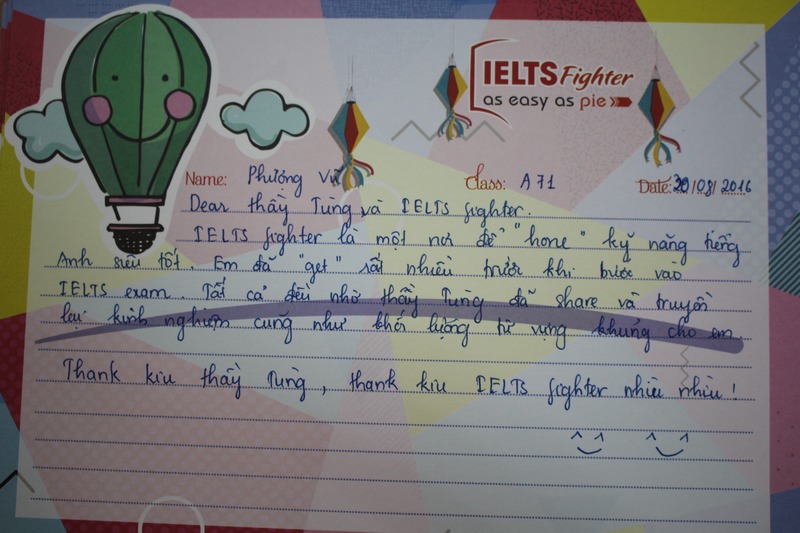 IELTS Fighter
as easy as pie
Name: Phượng Vũ Class: A71 Date: 20/08/2016
Dear thầy Tùng và IELTS fighter.
IELTS fighter là một nơi để "hone" kỹ năng tiếng
Anh siêu tốt. Em đã "get" rất nhiều trước khi bước vào
IELTS exam. Tất cả đều nhờ thầy Tùng đã share và truyền
lại kinh nghiệm cũng như khối lượng từ vựng khủng cho em.
Thank kiu thầy Tùng, thank kiu IELTS fighter nhiù nhiù!